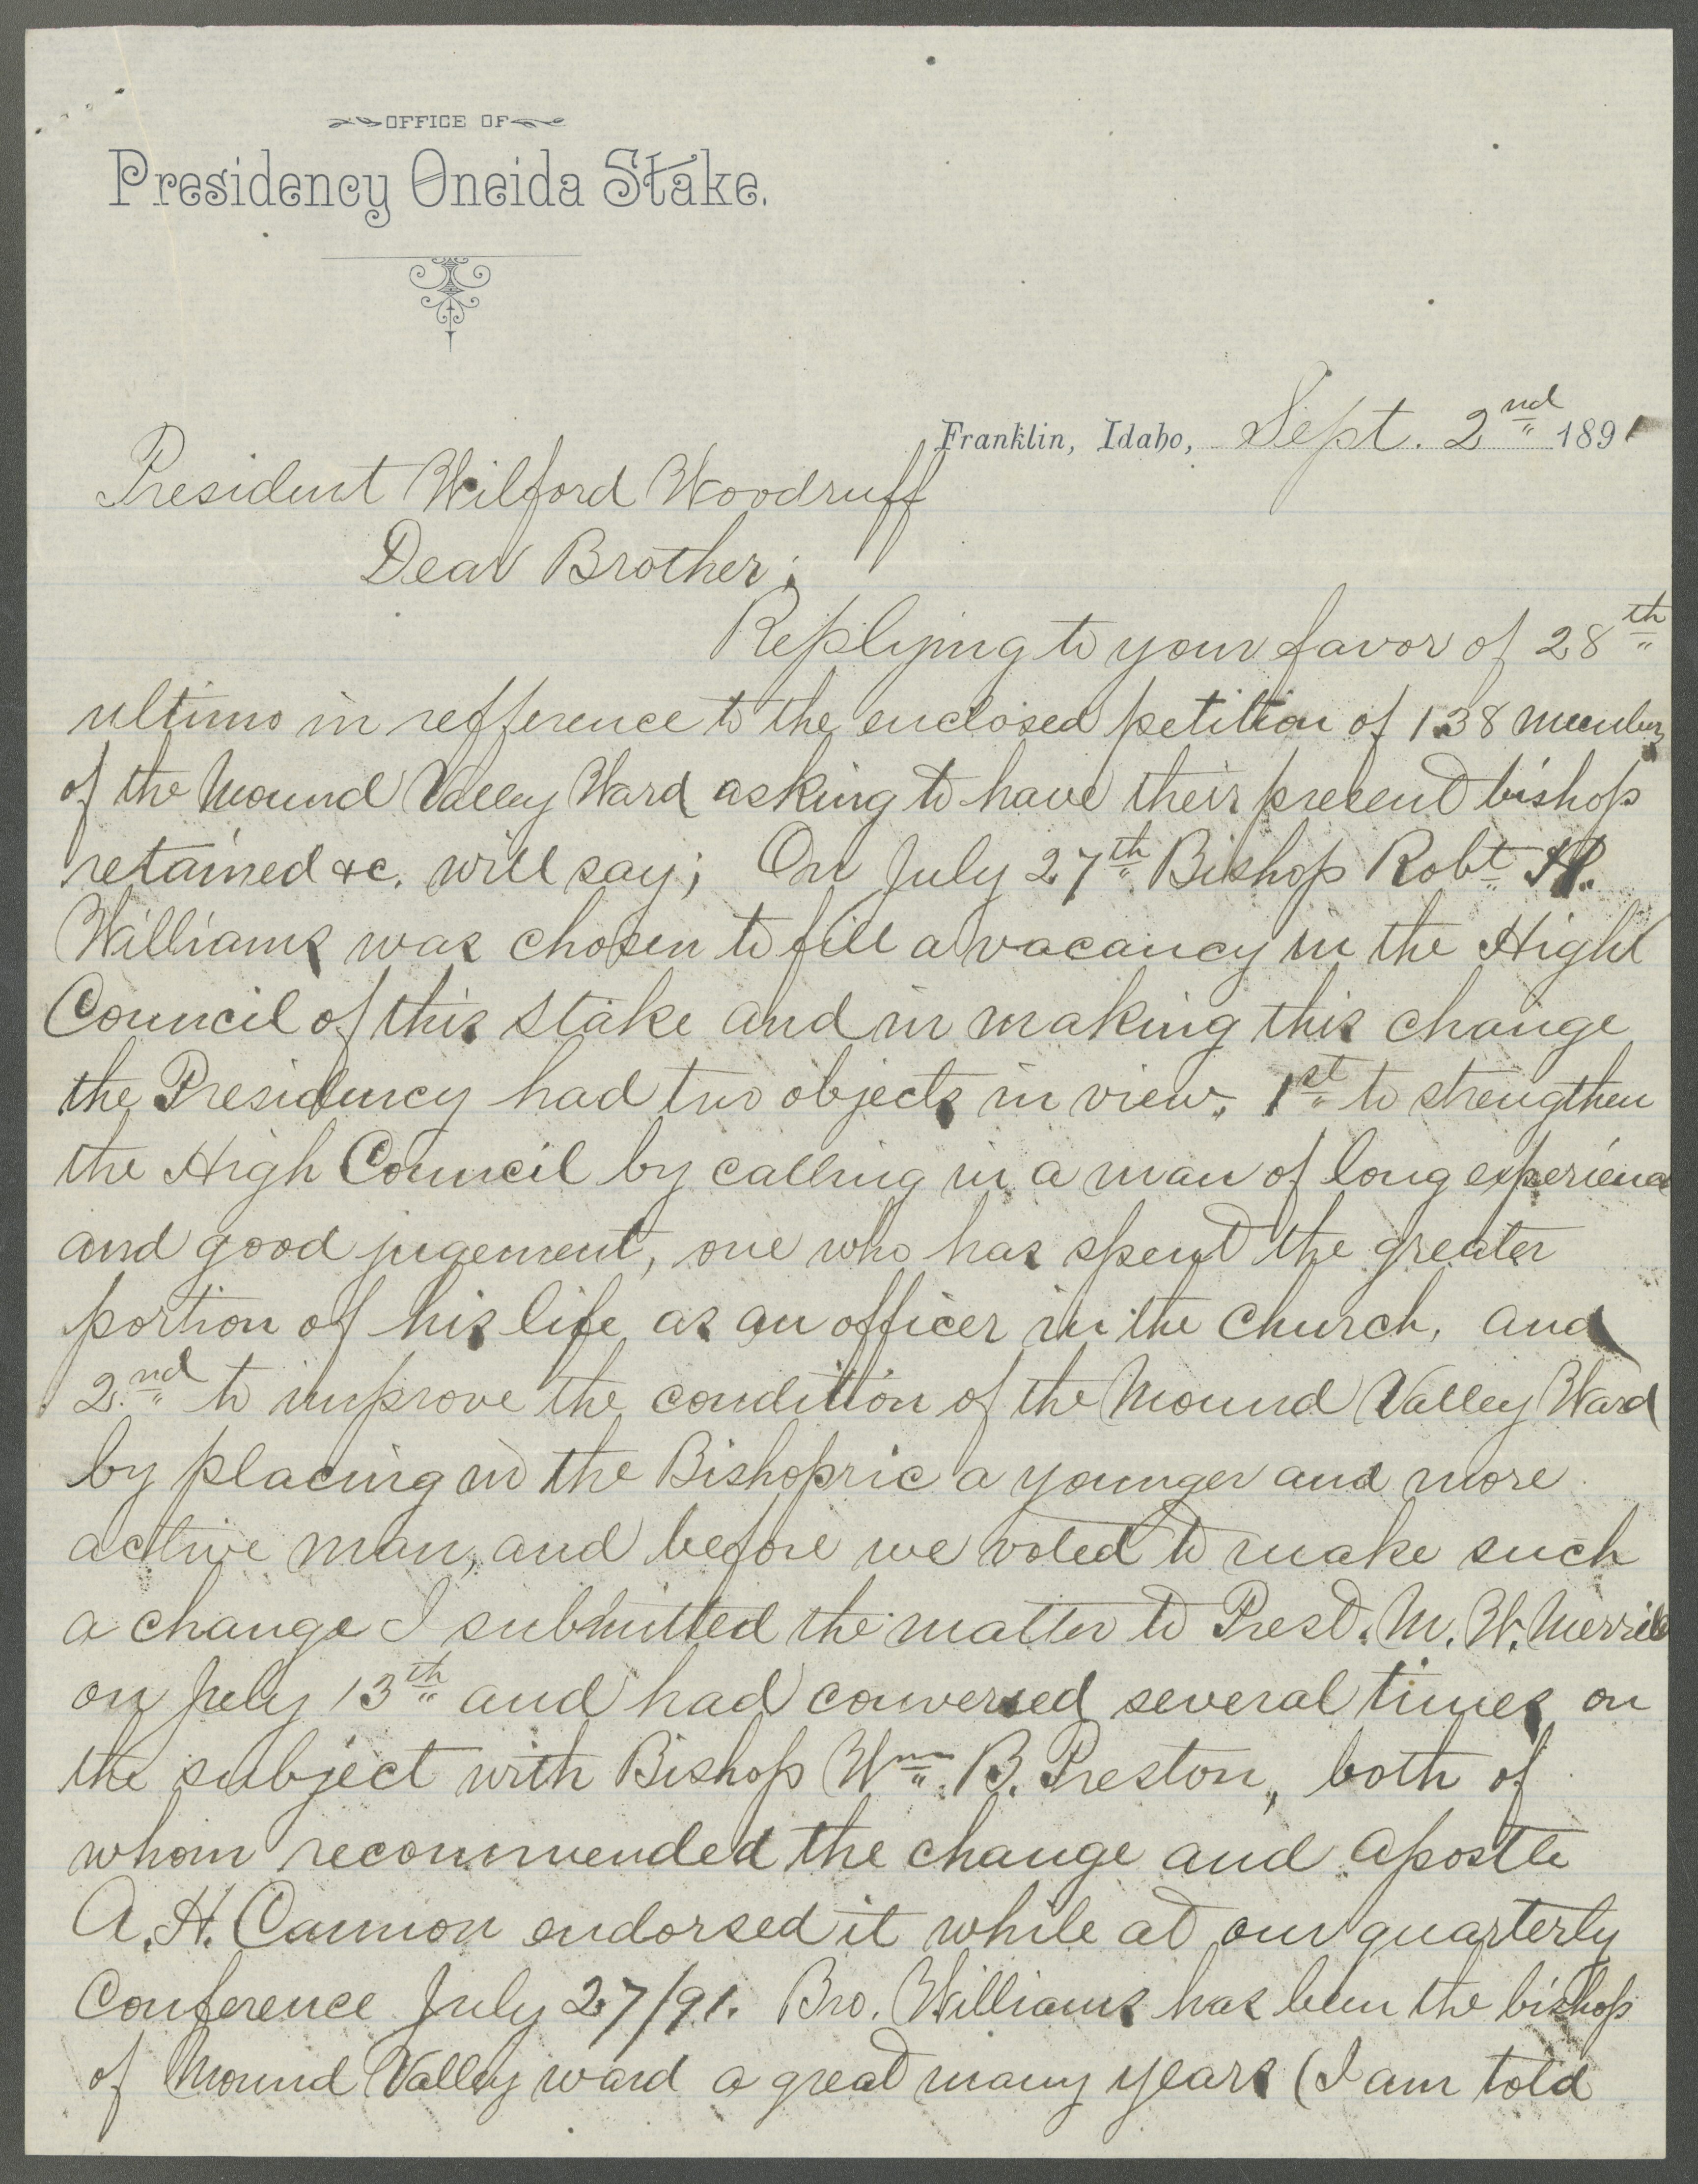 OFFICE OF
Presidency Oneida Stake.
Franklin, Idaho, Sept. 2nd 1891
President Wilford Woodruff
Dear Brother;
Replying to your favor of 28th
ultimo in refference to the enclosed petition of 138 members
of the Mound Valley Ward asking to have their present bishop
retained &c. will say; On July 27th Bishop Robt H.
Williams was chosen to fill a vacancy in the High
Council of this Stake and in making this change
the Presidency had two objects in view. 1st to strengthen
the High Council by calling in a man of long experience
and good jugement, one who has spent the greater
portion of his life as an officer in the Church, and
2nd to improve the condition of the Mound Valley Ward
by placing in the Bishopric a younger and more
active man, and before we voted to make such
a change I submitted the matter to Prest. M. W. Merrill
on July 13th and had conversed several times on
the subject with Bishop Wm. B. Preston, both of
whom recommended the change and Apostle
A. H. Cannon endorsed it while at our quarterly
Conference July 27/91. Bro. Williams has been the bishop
of Mound Valley ward a great many years (I am told